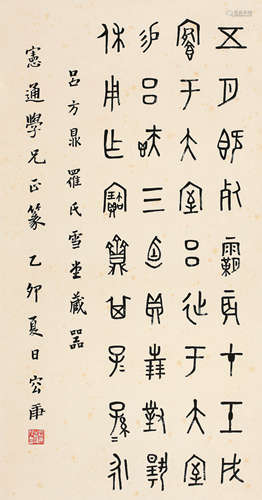 五月既死霸辰才壬戌
于大室呂延于大室
呂三卣貝對揚
休用乍寶齍其子孫永
呂方鼎羅氏雪堂藏器
憲通學兄正篆乙卯夏日容庚